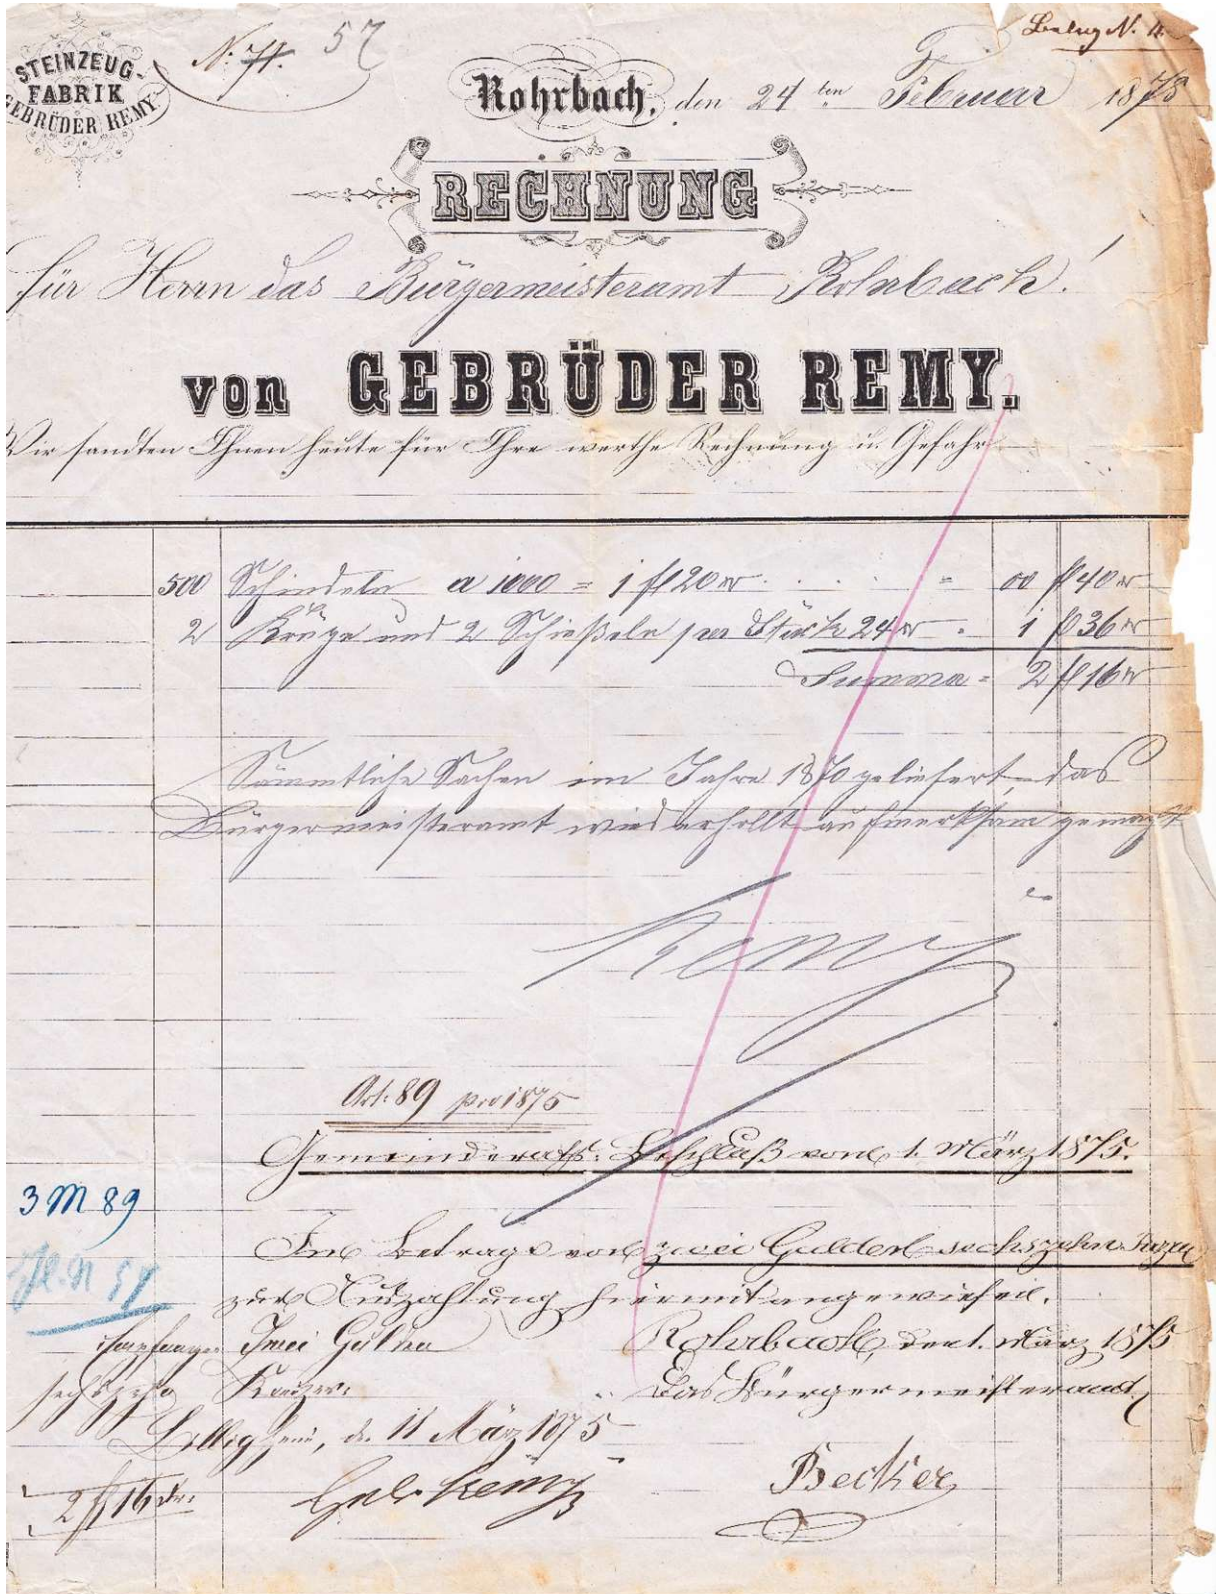 STEINZEUG-
FABRIK
GEBRÜDER REMY.
N. 71. 57
Beleg N. 4
Rohrbach, den 24 ten Februar 1875
RECHNUNG
für Herrn das Bürgermeisteramt Rohrbach!
von GEBRÜDER REMY.
Wir sandten Ihnen heute für Ihre werthe Rechnung u. Gefahr
500 Schindeln a 1000 = 1 fl 20 xr = 00 fl 40 xr
2 Krüge und 2 Schießeln per Stück 24 xr . 1 fl 36 xr
Summa = 2 fl 16 xr
Sämmtliche Sachen im Jahre 1870 geliefert, das
Bürgermeisteramt wird erhollt aufmerksam gemacht
Remy
Art. 89 pro 1875
Gemeinderaths: Beschluß vom 1. März 1875.
3 M 89
Im Betrage von zwei Gulden sechszehn
zur Auszahlung hiermit angewiesen.
Empfangen Zwei Gulden
Rohrbach, den 1. März 1875
sechszehn Kreuzer.
Das Bürgermeisteramt
Billigheim, d. 11 März 1875
2 fl 16 xr.
Gebr Remy
Becker